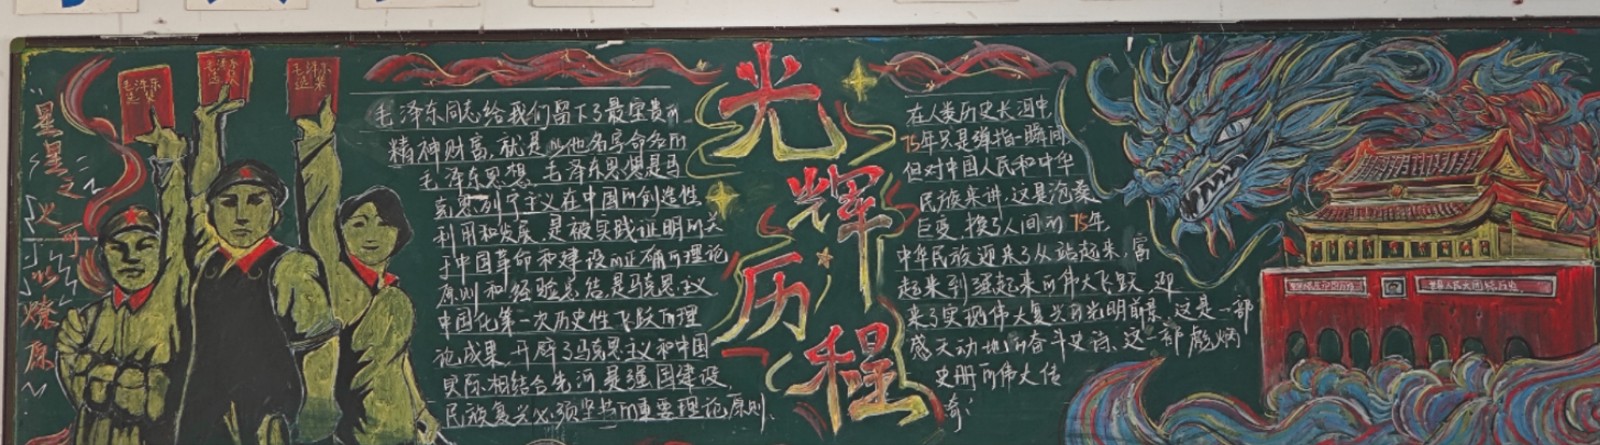 星星之火可以燎原
毛泽东同志给我们留下了最宝贵的
精神财富,就是以他名字命名的
毛泽东思想。毛泽东思想是马
克思列宁主义在中国的创造性
利用和发展,是被实践证明的关
于中国革命和建设的正确的理论
原则和经验总结,是马克思主义
中国化第一次历史性飞跃的理
论成果,开辟了马克思主义和中国
实际相结合先河,是强国建设,
民族复兴必须坚持的重要理论原则、
光辉历程
在人类历史长河中
75年只是弹指一瞬间
但对中国人民和中华
民族来讲,这是沧桑
巨变,换了人间的75年,
中华民族迎来了从站起来,富
起来到强起来的伟大飞跃,迎
来了实现伟大复兴的光明前景,这是一部
感天动地的奋斗史诗,这一部彪炳
史册的伟大传
奇。